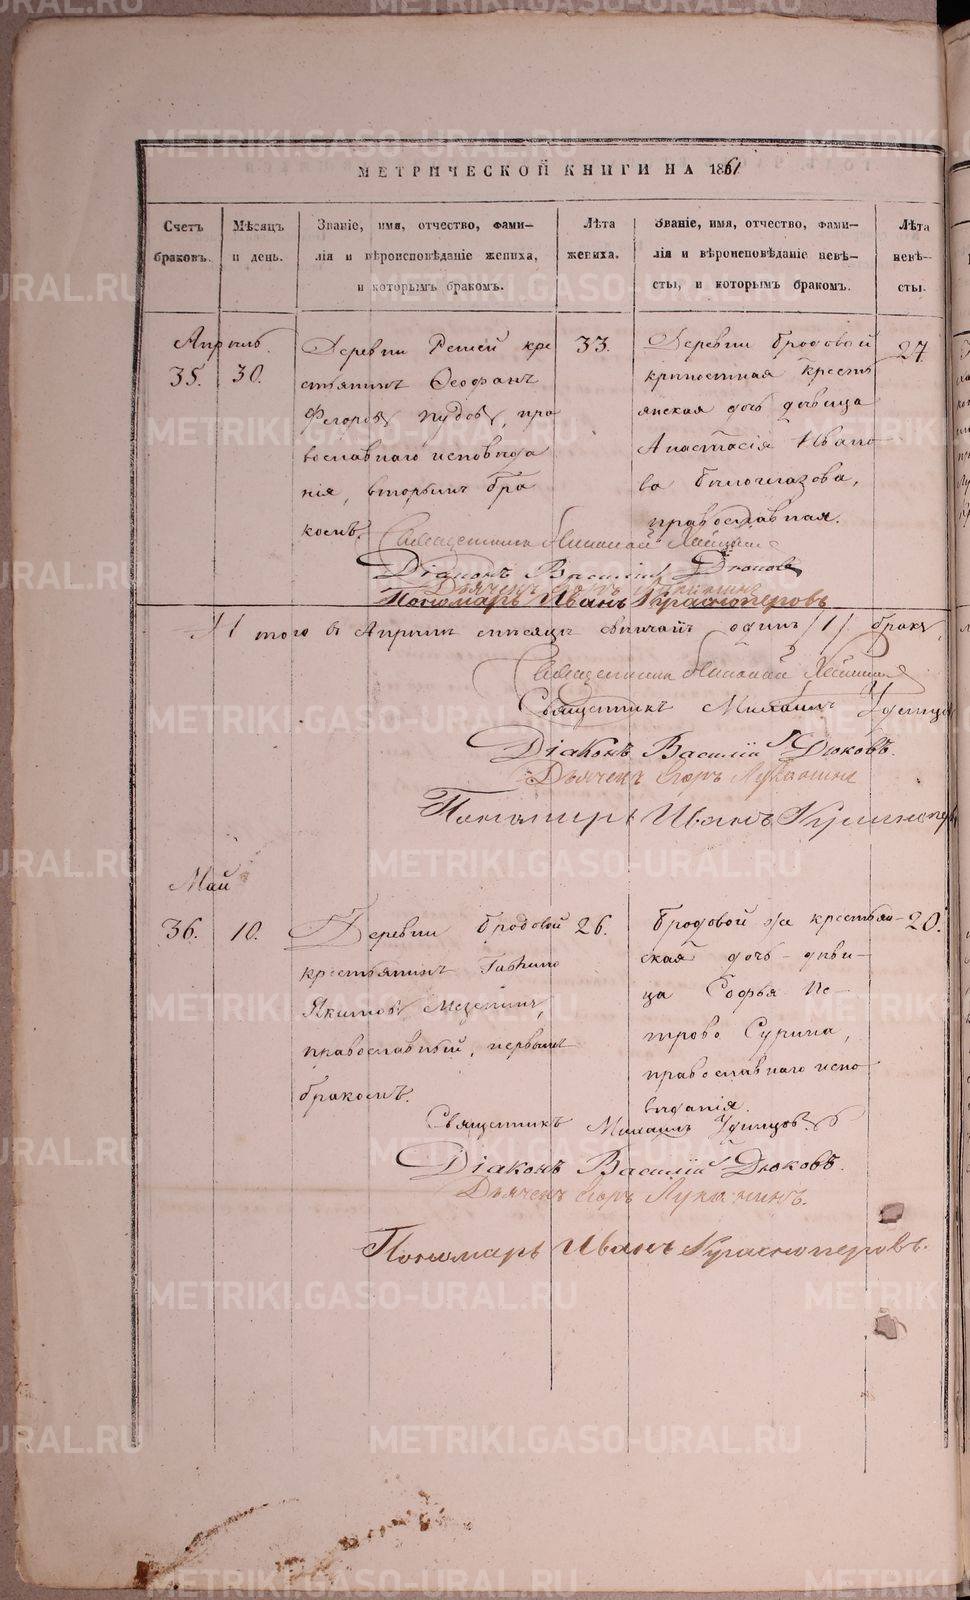 МЕТРИЧЕСКОЙ КНИГИ НА 1861
Счетъ браковъ.
Мѣсяцъ и день.
Званіе, имя, отчество, фами-
лія и вѣроисповѣданіе жениха,
и которымъ бракомъ.
Лѣта
жениха.
Званіе, имя, отчество, фами-
лія и вѣроисповѣданіе невѣ-
сты, и которымъ бракомъ.
Лѣта
невѣ-
сты.
Апрѣль.
35.
30.
Деревни Решей кре
стьянинъ Феофанъ
Федоровъ Пудовъ, пра
вославнаго исповѣда
нія, вторымъ бра
комъ.
33.
Деревни Бродовой
крѣпостная кресть
янская дочь дѣвица
Анастасія Ивано
ва Бѣлоглазова,
православная.
27
Священникъ Николай
Діаконъ Василій Дюковъ
Дьячекъ
Пономарь Иванъ Красноперовъ
Итого в Апрѣлѣ мѣсяцѣ вѣнчанъ одинъ /1/ бракъ,
Священникъ Николай
Священникъ Михаилъ Удинцовъ
Діаконъ Василій Дюковъ.
Дьячекъ Егоръ Лукинъ
Пономарь Иванъ Красноперовъ
Май
36.
10.
Деревни Бродовой
крестьянинъ
Якимовъ Мезенинъ,
православный, первымъ
бракомъ.
26.
Бродовой же крестьян-
ская дочь – дѣви-
ца Софья Пе-
трова Сурина,
православнаго испо
вѣданія.
20.
Священникъ Михаилъ Удинцовъ
Діаконъ Василій Дюковъ.
Дьячекъ Егоръ
Пономарь Иванъ Красноперовъ.
METRIKI.GASO-URAL.RU